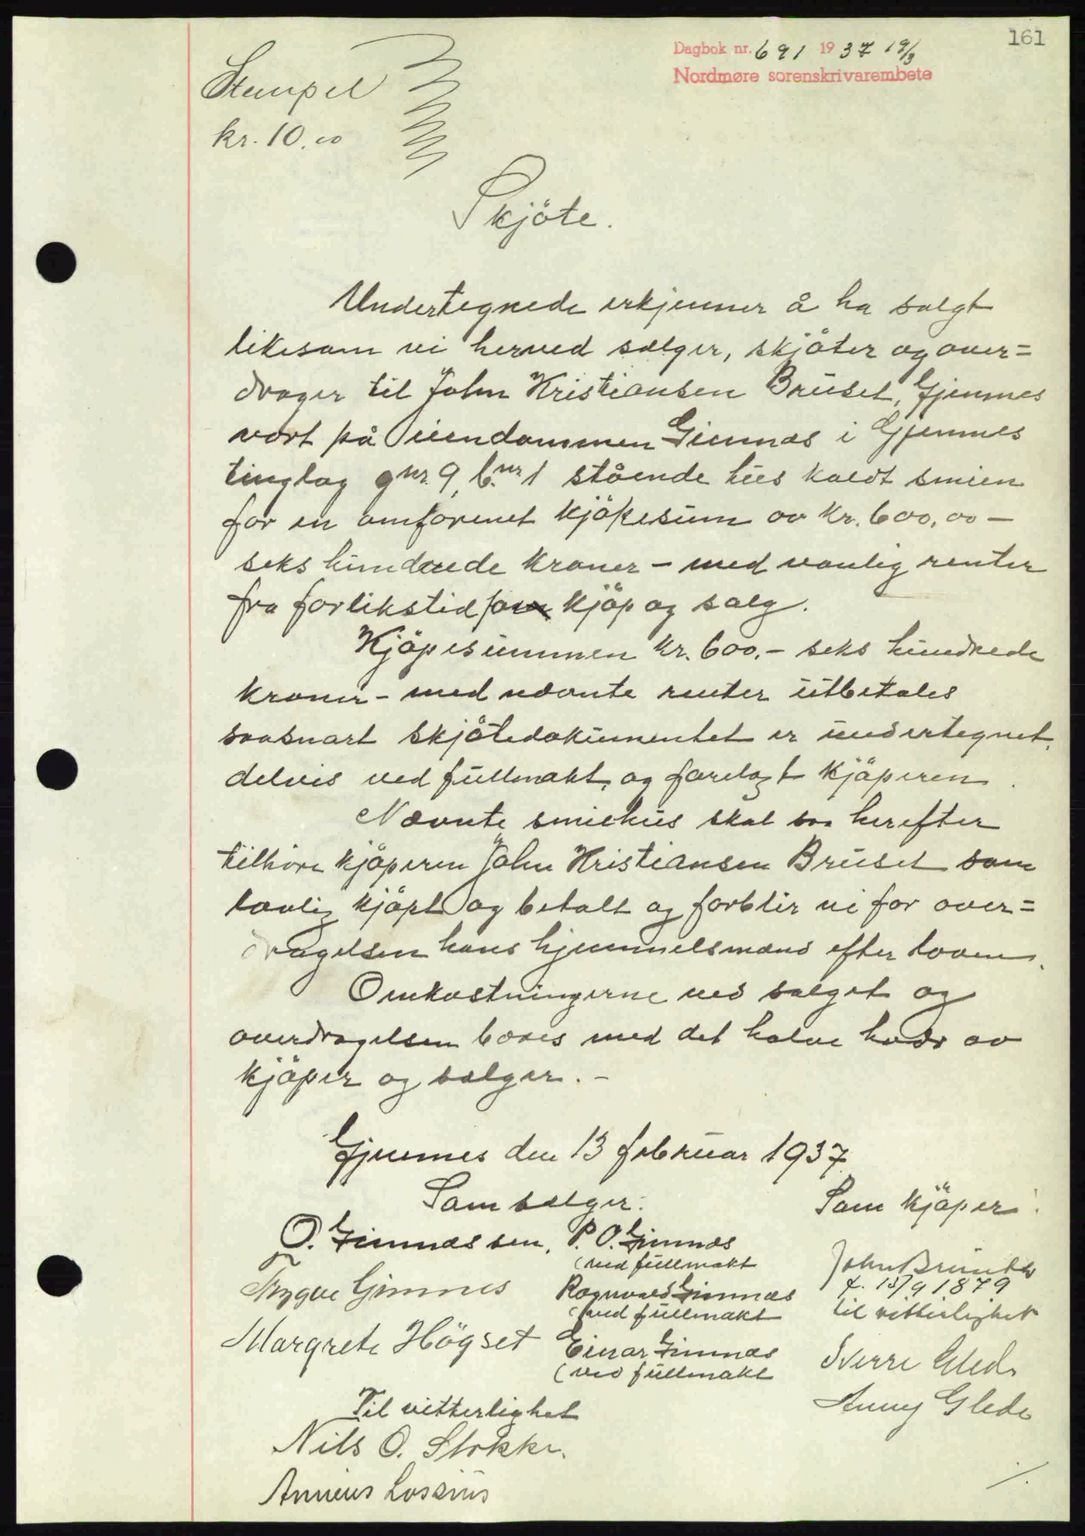 161
Dagbok nr. 691 1937 19/3
Nordmøre sorenskrivarembete
Stempel
kr. 10.00
Skjöte.
Undertegnede erkjenner å ha solgt
likesom vi herved sælger, skjöter og over=
drager til John Kristiansen Bruset, Gjemnes
vort på eiendommen Gimnæs i Gjemnes
tinglag gnr. 9, b.nr 1 stående hus kaldt smien
for en omforenet kjöpesum av kr. 600,00 –
seks hundrede kroner – med vanlig renter
fra forlikstid for kjöp og salg.
Kjöpesummen kr. 600.– seks hundrede
kroner – med nævnte renter utbetales
saasnart skjötedokumentet er undertegnet,
delvis ved fullmakt, og forelagt kjöperen.
Nævnte smiehus skal saa herefter
tilhöre kjöperen John Kristiansen Bruset som
lovlig kjöpt og betalt og forblir vi for over=
dragelsen hans hjemmelsmænd efter loven.
Omkostningerne ved salget og
overdragelsen bæres med det halve hver av
kjöper og sælger. –
Gjemnes den 13 februar 1937
Som sælger: Som kjöper:
O. Gimnæs sen. P. O. Gimnæs
(ved fullmakt
John Bruset
f. 15/9 1879
Trygve Gimnes Ragnvald Gimnæs
(ved fullmakt til vitterlighet
Margrete Högset Einar Gimnæs
(ved fullmakt
Sverre Glede
Anny Glede
Til vitterlighet
Nils O. Stokke.
Annæus Lossius